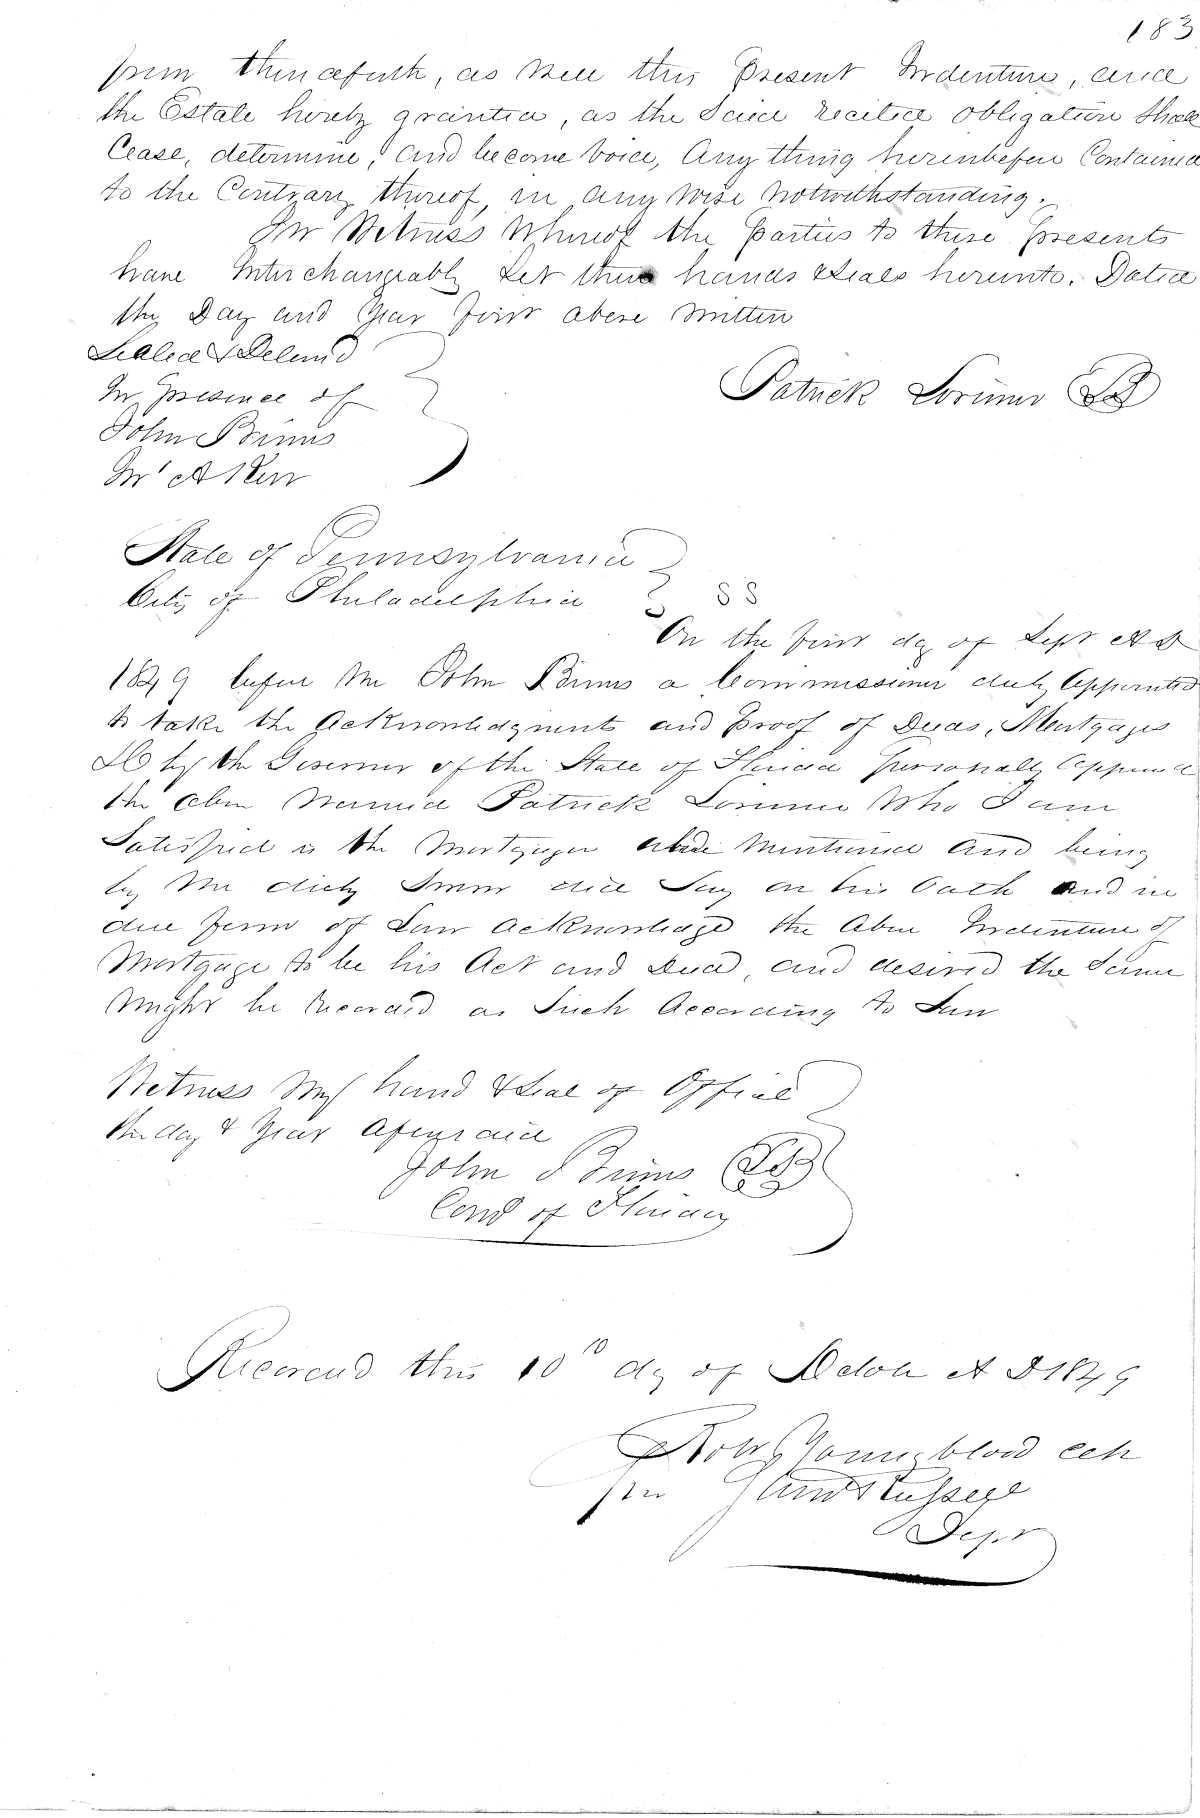 183
from thenceforth, as well this Present Indenture, and
the Estate hereby granted, as the said recited obligation shall
Cease, determine, and become void, Any thing hereinbefore Contained
to the Contrary thereof, in any wise notwithstanding.
In Witness Whereof the Parties to these presents
have Interchangeably Set their hands & seals hereunto. Dated
the Day and Year first above written
Sealed & Deliverd
In presence of
Patrick Lorimer
John Binns
Wm A Kerr
State of Pennsylvania
City of Philadelphia SS
On the first day of Sept A D
1849 before me John Binns a Commissioner duly Appointed
to take the Acknowledgments and proof of Deeds, Mortgages
&C by the Governor of the State of Florida personally Appeared
the above Named Patrick Lorimer Who I am
Satisfied is the Mortgagor above Mentioned And being
by me duly Sworn did Say on his Oath and in
due form of Law Acknowledged the Above Indenture of
Mortgage to be his Act and Deed, and desired the Same
Might be Recorded as Such According to Law
Witness My hand & Seal of Office
the day & Year aforesaid
John Binns
Comr of Florida
Recorded this 10th day of Octobr A D 1849
Robt Youngblood Clk
per
Dept